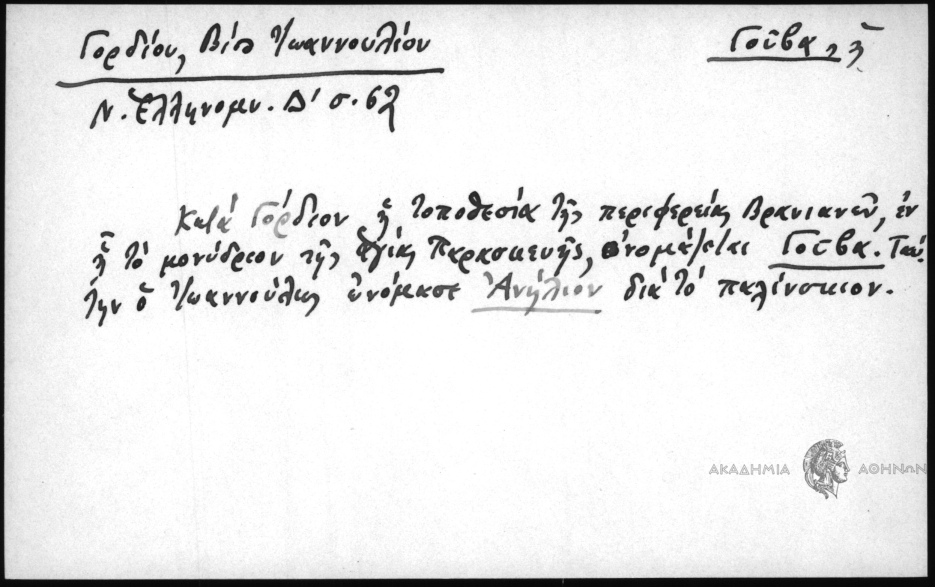 Γορδίου, Βίος Ἰωαννουλίου
Γοῦβα, ἡ
Ν. Ἑλληνομν. Δ' σ. 62
Κατά Γόρδιον ἡ τοποθεσία τῆς περιφερείας Βρανιανῶν, ἐν
ᾗ τό μονύδριον τῆς Ἁγίας Παρασκευῆς, ὀνομάζεται Γοῦβα. Ταύ-
την ὁ Ἰωαννούλιος ὠνόμασε Ἀνήλιον διά τό παλίνσκιον.
ΑΚΑΔΗΜΙΑ ΑΘΗΝΩΝ